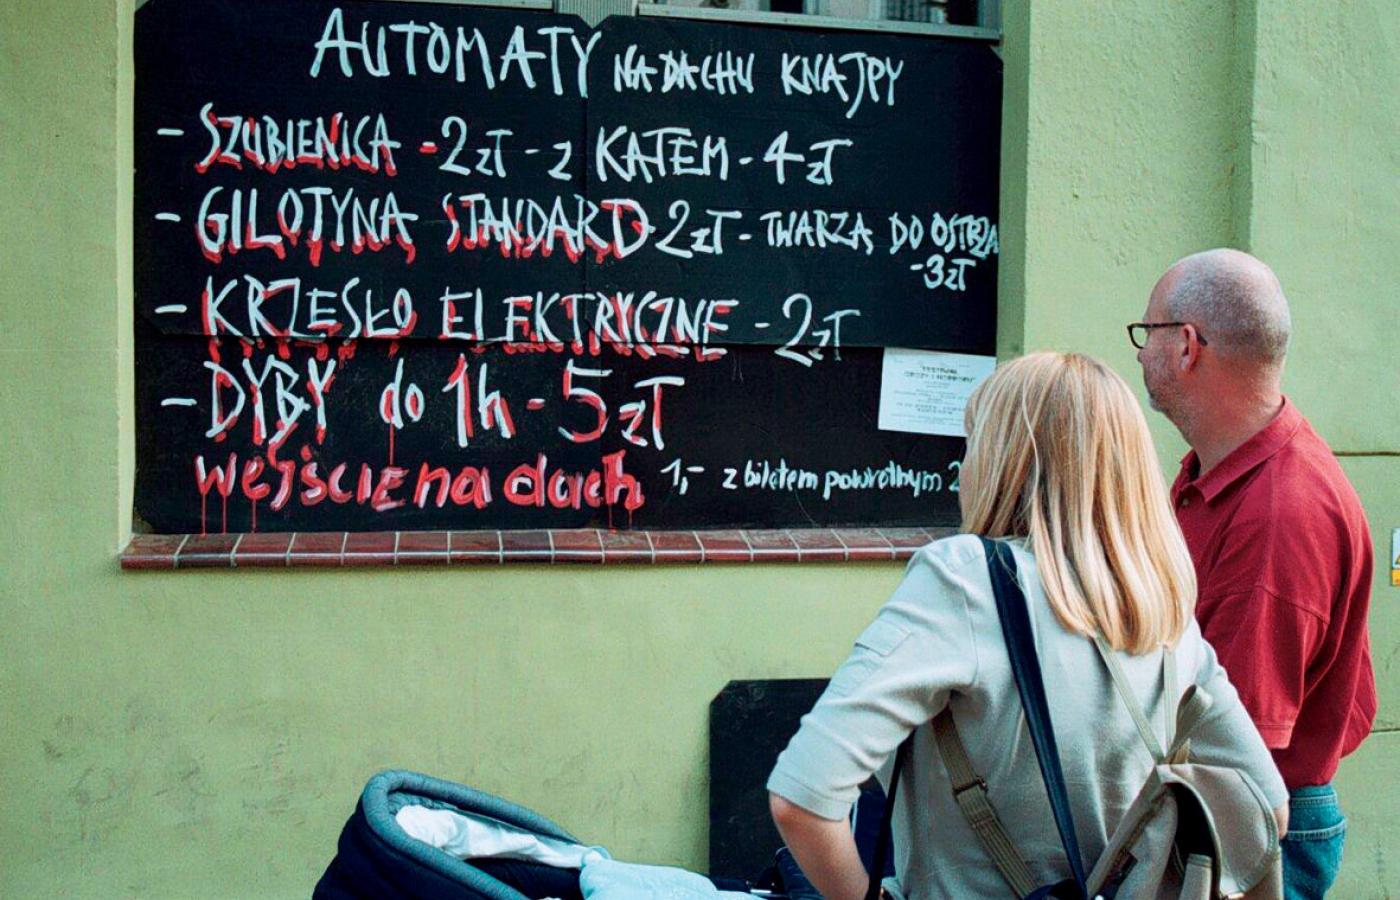 AUTOMATY NA DACHU KNAJPY
- SZUBIENICA - 2 zł - z KATEM - 4 zł
- GILOTYNA STANDARD - 2 zł - TWARZĄ DO OSTRZA
- 3 zł
- KRZESŁO ELEKTRYCZNE - 2 zł
- DYBY do 1h - 5 zł
wejście na dach 1,- z biletem powrotnym 2